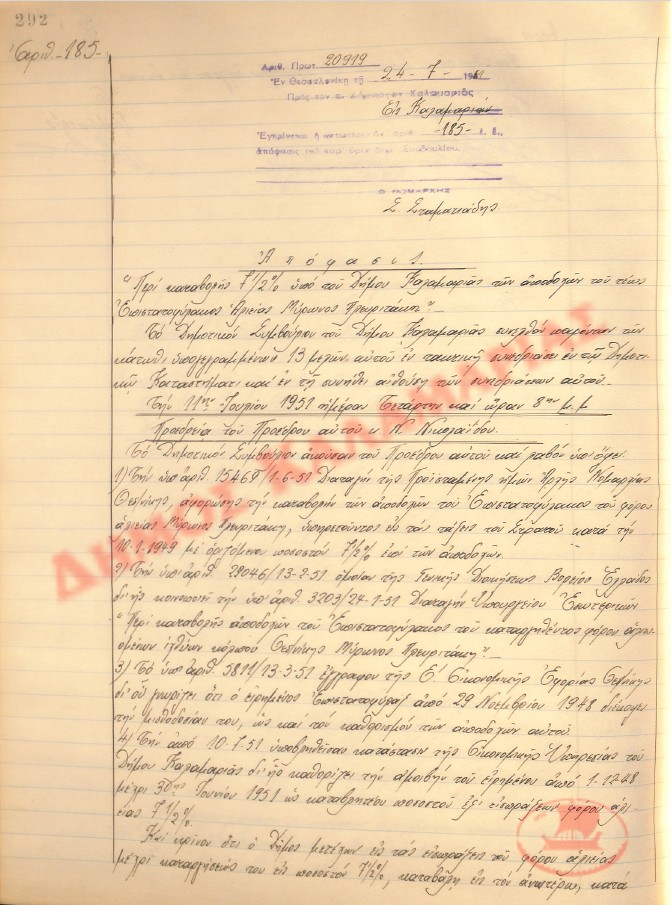 292
Αριθ. -185-
Αριθ. Πρωτ. 20919
Ἐν Θεσσαλονίκῃ τῇ 24-7-1951
Πρὸς τὸν κ. Δήμαρχον Καλαμαριᾶς
Εἰς Καλαμαριάν
Ἐγκρίνεται ἡ -185- ἐ. ἔ.
ἀπόφασις τοῦ Συμβουλίου.
Ο ΝΟΜΑΡΧΗΣ
Σ. Σταματιάδης
Ἀπόφασις.
"Περὶ καταβολῆς 7 1/2% ὑπὸ τοῦ Δήμου Καλαμαριᾶς τῶν ἀποδοχῶν τοῦ τέως
Ἐπιστατοφύλακος Ἁλιείας Μύρωνος Πλευριτάκη".-
Τὸ Δημοτικὸν Συμβούλιον τοῦ Δήμου Καλαμαριᾶς συνελθὸν παρόντων τῶν
κάτωθι ὑπογεγραμμένων 13 μελῶν αὐτοῦ ἐν τακτικῇ συνεδριάσει ἐν τῷ Δημοτι-
κῷ Καταστήματι καὶ ἐν τῇ συνήθει αἰθούσῃ τῶν συνεδριάσεων αὐτοῦ.-
Τὴν 11ην Ἰουλίου 1951 ἡμέραν Τετάρτην καὶ ὥραν 8ην μ.μ
Προεδρεία τοῦ Προέδρου αὐτοῦ κ. Ν. Νικολαΐδου.
Τὸ Δημοτικὸν Συμβούλιον ἀκοῦσαν τοῦ Προέδρου αὐτοῦ καὶ λαβὸν ὑπ' ὄψει
1) Τὴν ὑπ' ἀριθ. 1/1-6-51 Διαταγὴν τῆς Προϊσταμένης ἡμῶν Ἀρχῆς Νομαρχίας
Θεσ/νίκης, ἀφορώσης τὴν καταβολὴν τῶν ἀποδοχῶν τοῦ Ἐπιστατοφύλακος τοῦ φόρου
ἁλιείας Μύρωνος Πλευριτάκη, ὑπηρετοῦντος εἰς τὰς τάξεις τοῦ Στρατοῦ κατὰ τὴν
10-1-1949 μὲ ὁριζόμενο ποσοστὸν 7 1/2% ἐπὶ τῶν ἀποδοχῶν.
2) Τὴν ὑπ' ἀριθ. 29046/13-2-51 ὁμοίαν τῆς Γενικῆς Διοικήσεως Βορείου Ἑλλάδος
δι' ἧς κοινοποιεῖ τὴν ὑπ' ἀριθ. 3203/24-1-51 Διαταγὴν Ὑπουργείου Ἐσωτερικῶν
"Περὶ καταβολῆς ἀποδοχῶν τοῦ Ἐπιστατοφύλακος τοῦ καταργηθέντος φόρου ἁλιευ-
ομένων ἰχθύων κόλπου Θεσ/νίκης Μύρωνος Πλευριτάκη".-
3) Τὸ ὑπ' ἀριθ. 5811/13-3-51 ἔγγραφον τῆς Ε'. Οἰκονομικῆς Ἐφορίας Θεσ/νίκης
δι' οὗ γνωρίζει ὅτι ὁ εἰρημένος Ἐπιστατοφύλαξ ἀπὸ 29 Νοεμβρίου 1948
τὴν μισθοδοσίαν του, ὡς καὶ τὸν καθορισμὸν τῶν ἀποδοχῶν αὐτοῦ.
4) Τὴν ἀπὸ 10-7-51 ὑποβληθεῖσαν κατάστασιν τῆς Οἰκονομικῆς Ὑπηρεσίας τοῦ
Δήμου Καλαμαριᾶς δι' ἧς καθορίζει τὴν ἀμοιβὴν τοῦ εἰρημένου ἀπὸ 1-12-48
μέχρι 30ης Ἰουνίου 1951 ὡς καταβλητέου ποσοστοῦ ἐξ εἰσπράξεων φόρου ἁλι-
είας 7 1/2%.
Καὶ κρῖνον ὅτι ὁ Δῆμος μετέχων εἰς τὰς εἰσπράξεις τοῦ φόρου ἁλιείας
μέχρι καταργήσεώς του εἰς ποσοστὸν 7 1/2%, καταβάλῃ εἰς τὸν ἀνωτέρω, κατὰ
ΔΗΜΟΣ ΚΑΛΑΜΑΡΙΑΣ